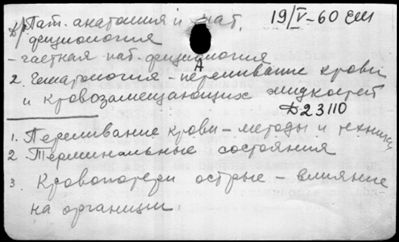 1) Пат. анатомия и пат. 19/V-60 ЕМ
физиология
- частная пат. физиология
2. Гематология - переливание крови
и кровозамещающих жидкостей
Д23110
1. Переливание крови - методы и техника
2. Терминальные состояния
3. Кровопотери острые - влияние
на организм.